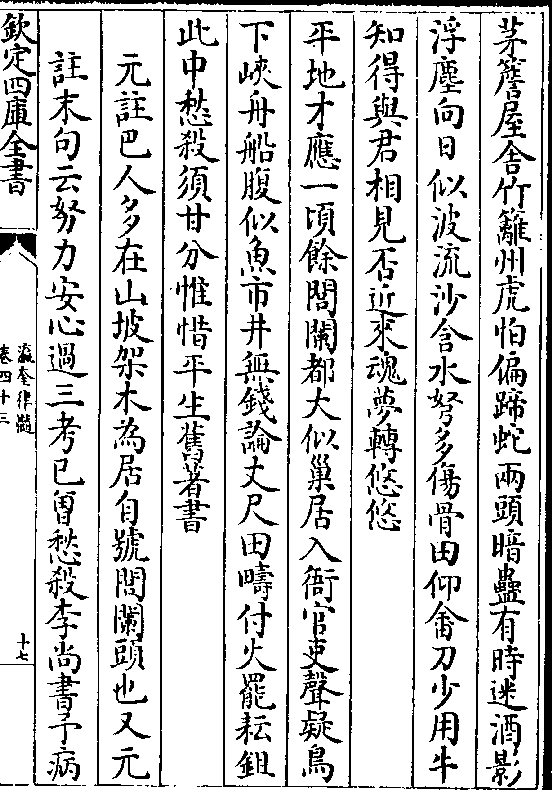 茅簷屋舍竹籬州虎怕偏蹄蛇兩頭暗蠱有時迷酒影
浮塵向日似波流沙含水弩多傷骨田仰畬刀少用牛
知得與君相見否近來魂夢轉悠悠
平地才應一頃餘閻闌都大似巢居入衙官吏聲疑鳥
下峽舟船腹似魚市井無錢論丈尺田疇付火罷耘鉏
此中愁殺須甘分惟惜平生舊著書
元註巴人多在山坡架木為居自號閻闌頭也又元
註末句云努力安心過三考已曾愁殺李尚書予病
欽定四庫全書
瀛奎律髓
卷四十三
十七